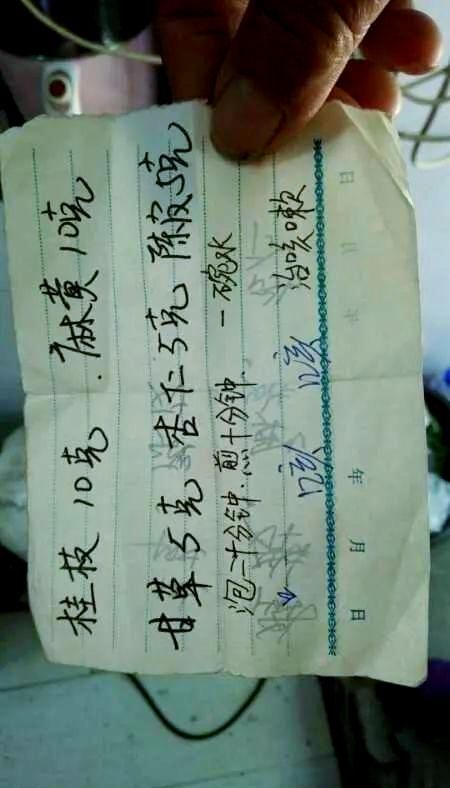 桂枝10克 麻黄10克
甘草5克 杏仁5克 陈皮5克
泡二十分钟.煎十分钟. 一碗水
咳 咳 治咳嗽
年 月 日